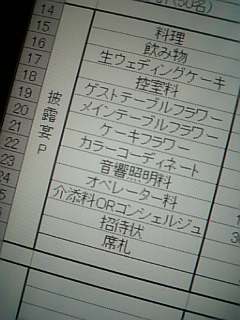 (50名)
14
15 料理
16 飲み物
17 生ウェディングケーキ
18 控室料
17 ゲストテーブルフラワー
18 メインテーブルフラワー
19 ケーキフラワー
20 カラーコーディネート
21 音響照明料
22 オペレーター料
23 介添料ORコンシェルジュ
24 招待状
25 席札
披露宴P